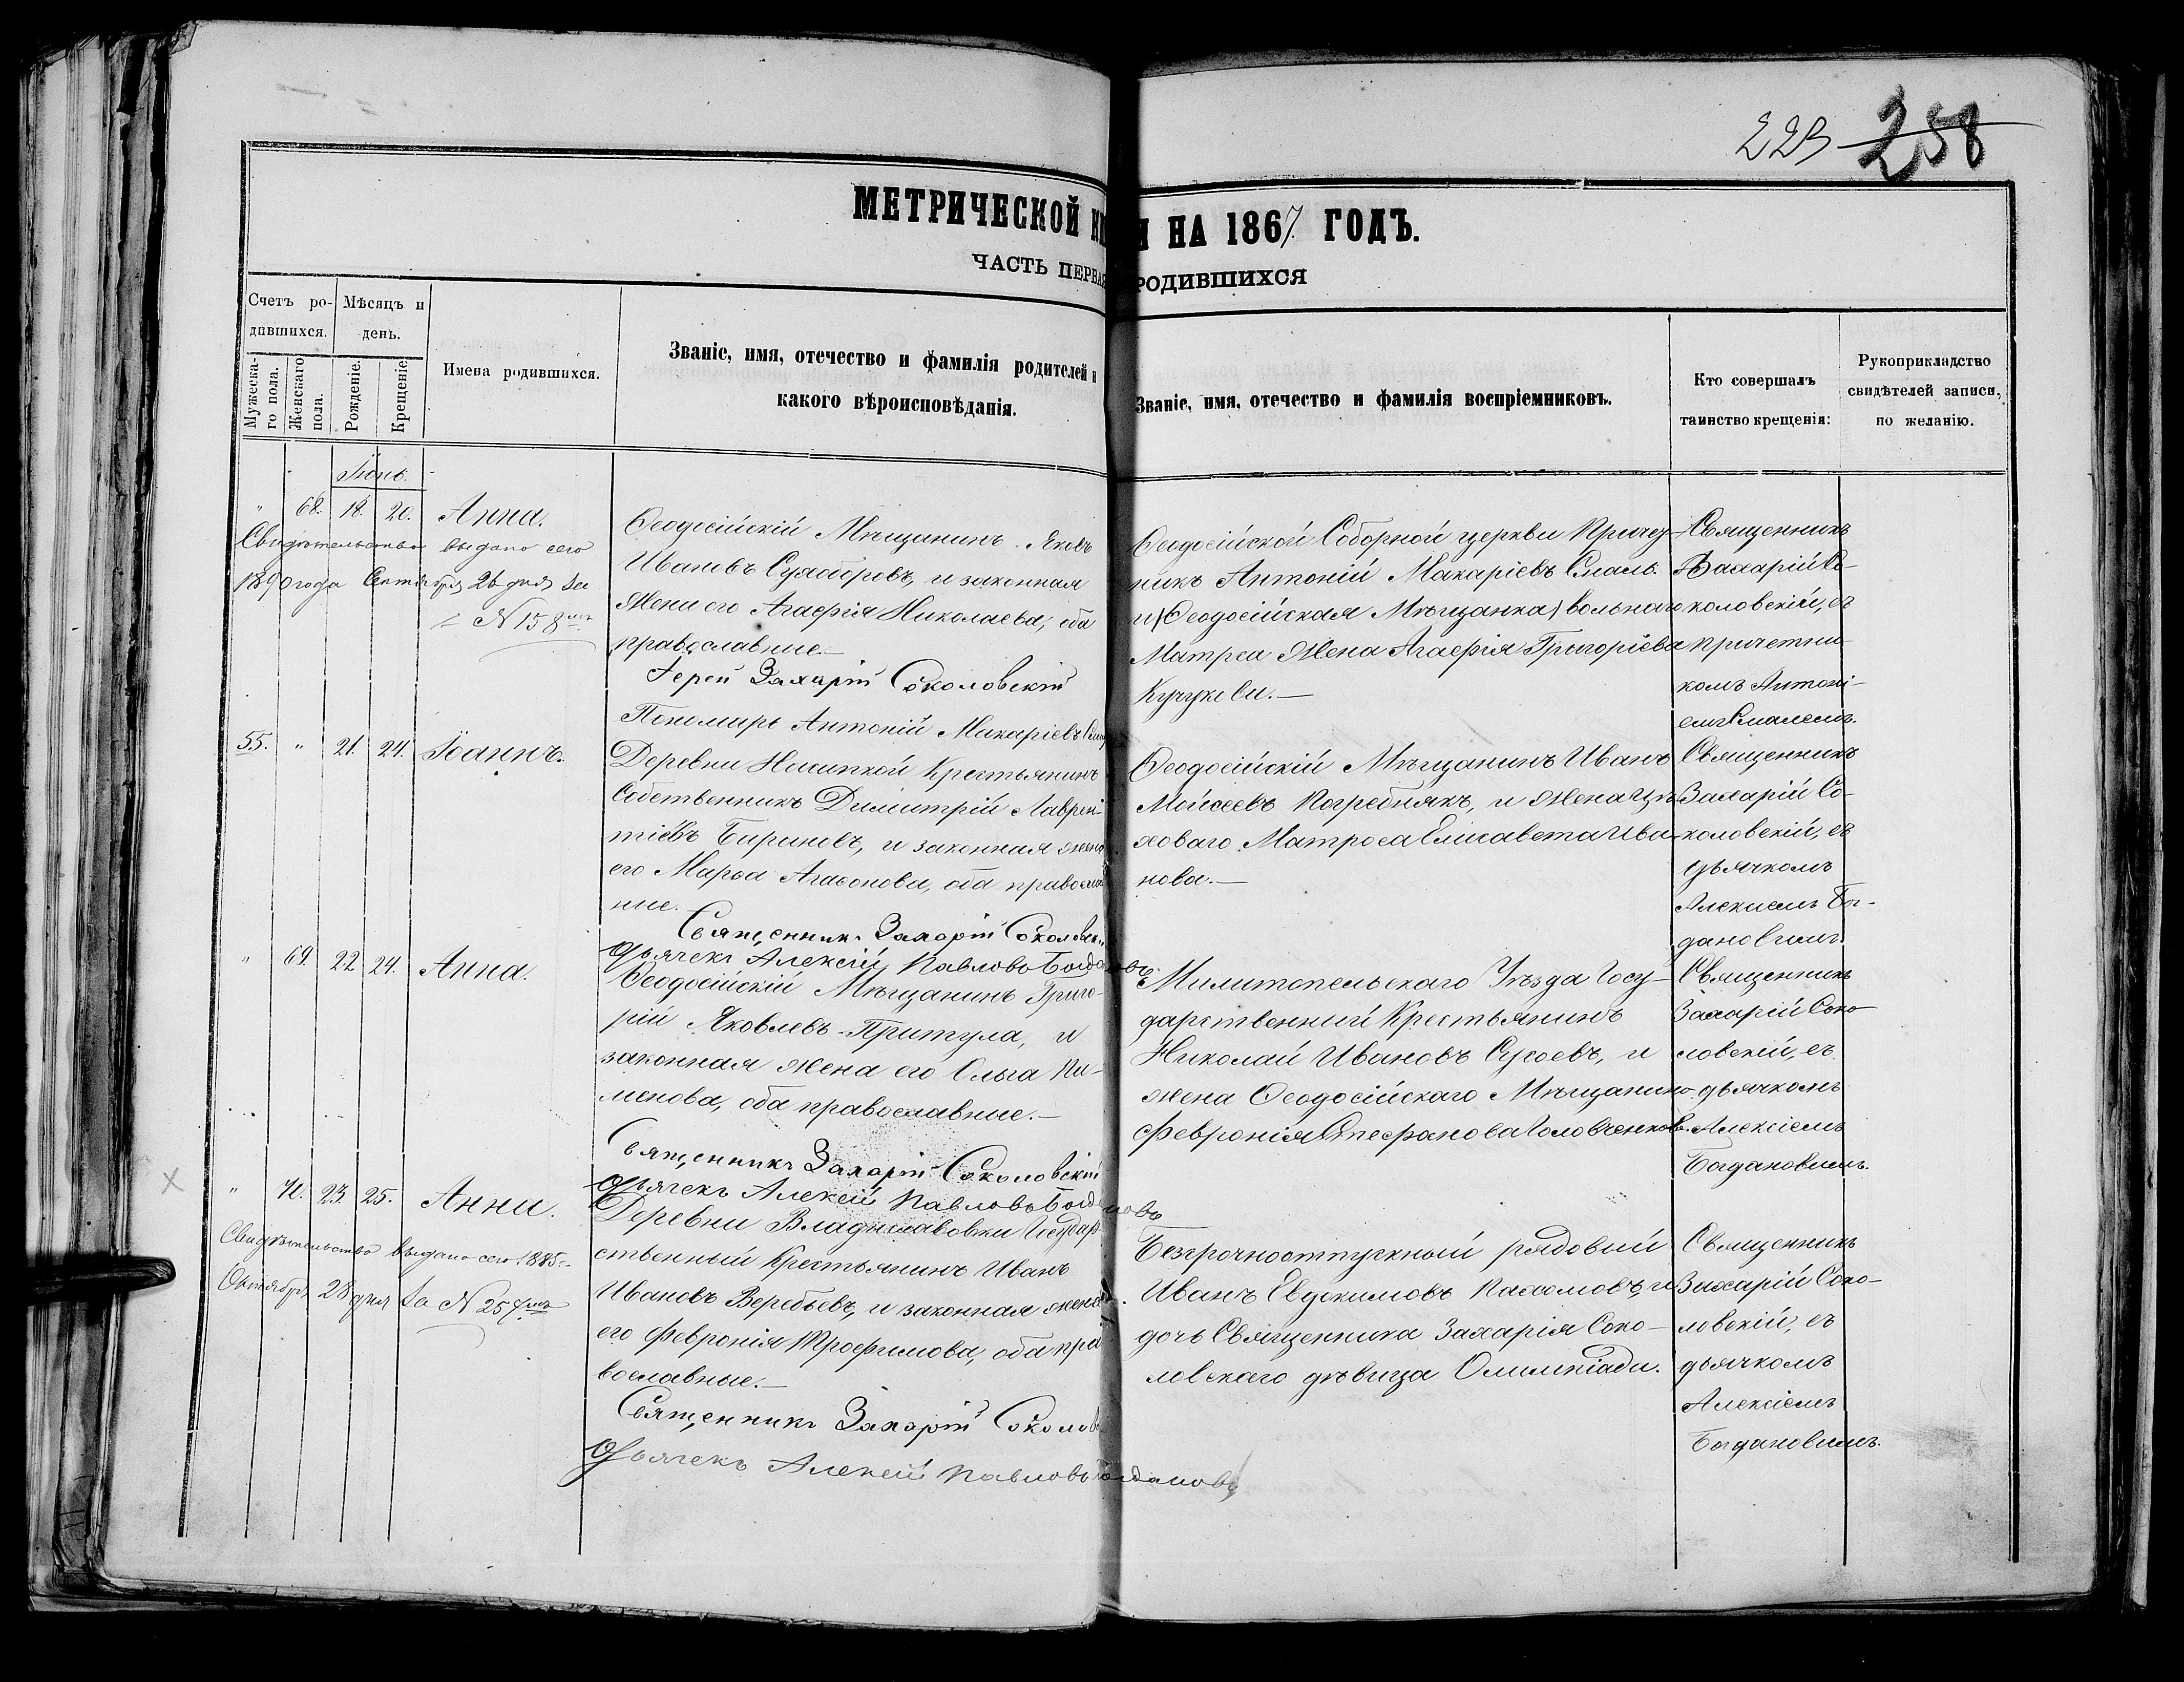 223 258
МЕТРИЧЕСКОЙ КН И НА 1867 ГОДЪ.
ЧАСТЬ ПЕРВАЯ РОДИВШИХСЯ
Счетъ ро-
дившихся.
Мѣсяцъ и
день.
Мужеска-
го пола.
Женскаго
пола.
Рожденіе.
Крещеніе.
Имена родившихся.
Званіе, имя, отечество и фамилія родителей и
какого вѣроисповѣданія.
Званіе, имя, отечество и фамилія воспріемниковъ.
Кто совершалъ
таинство крещенія:
Рукоприкладство
свидѣтелей записи,
по желанію.
" 68. 18. 20. Анна.
Свидѣтельство выдано сего
1890 года Сентября 26 дня за
№ 158мъ
Ѳеодосійскій Мѣщанинъ Яковъ
Ивановъ и законная
жена его Агаѳія Николаева, оба
православные.—
Іерей Захарій Соколовскій
Пономарь Антоній Макаріевъ
Ѳеодосійской Соборной церкви Причет-
никъ Антоній Макаріевъ Смаль.
и (Ѳеодосійская Мѣщанка) вольнаго
Матроса жена Агаѳія Григоріева
Священникъ
Захарій Со-
коловскій, съ
причетни-
комъ Антоні-
емъ Смалемъ.
55. " 21. 24. Іоаннъ.
Деревни Крестьянинъ
Собственникъ Димитрій Лаврен-
тіевъ Бириновъ, и законная жена
его Марѳа Агаѳонова, оба православ
ные.
Священникъ Захарій Соколовск
Дьячекъ Алексій Павловъ Богдановъ
Ѳеодосійскій Мѣщанинъ Иванъ
Моисеевъ Погребнякъ, и жена
ховаго Матроса Елисавета Ива-
нова.—
Священникъ
Захарій Со-
коловскій, съ
дьячкомъ
Алексіемъ Бог-
дановымъ.
" 69. 22. 24. Анна.
Ѳеодосійскій Мѣщанинъ Григо-
рій Яковлевъ Притула, и
законная жена его Ольга Пи-
менова, оба православные.—
Священникъ Захарій Соколовскій
Дьячекъ Алексій Павловъ Богдановъ
Мелитопельскаго Уѣзда Госу-
дарственный Крестьянинъ
Николай Ивановъ Сусоевъ, и
жена Ѳеодосійскаго Мѣщанина
Февронія Стефанова Головченкова.
Священникъ
Захарій Соко-
ловскій, съ
дьячкомъ
Алексіемъ
Богдановымъ.
" 70. 23. 25. Анна.
Свидѣтельство выдано сего 1885г.
Октября 28 дня за № 257мъ
Деревни Владиславовки Государ-
ственный Крестьянинъ Иванъ
Ивановъ Веребьевъ, и законная жена
его Февронія Трофимова, оба пра-
вославные.—
Священникъ Захарій Соколов
Дьячекъ Алексій Павловъ Богдановъ
Безсрочноотпускный рядовый
Иванъ Евдокимовъ Пахомовъ, и
дочь Священника Захарія Соко-
ловскаго дѣвица Олимпіада.
Священникъ
Захарій Соко-
ловскій, съ
дьячкомъ
Алексіемъ
Богдановымъ.